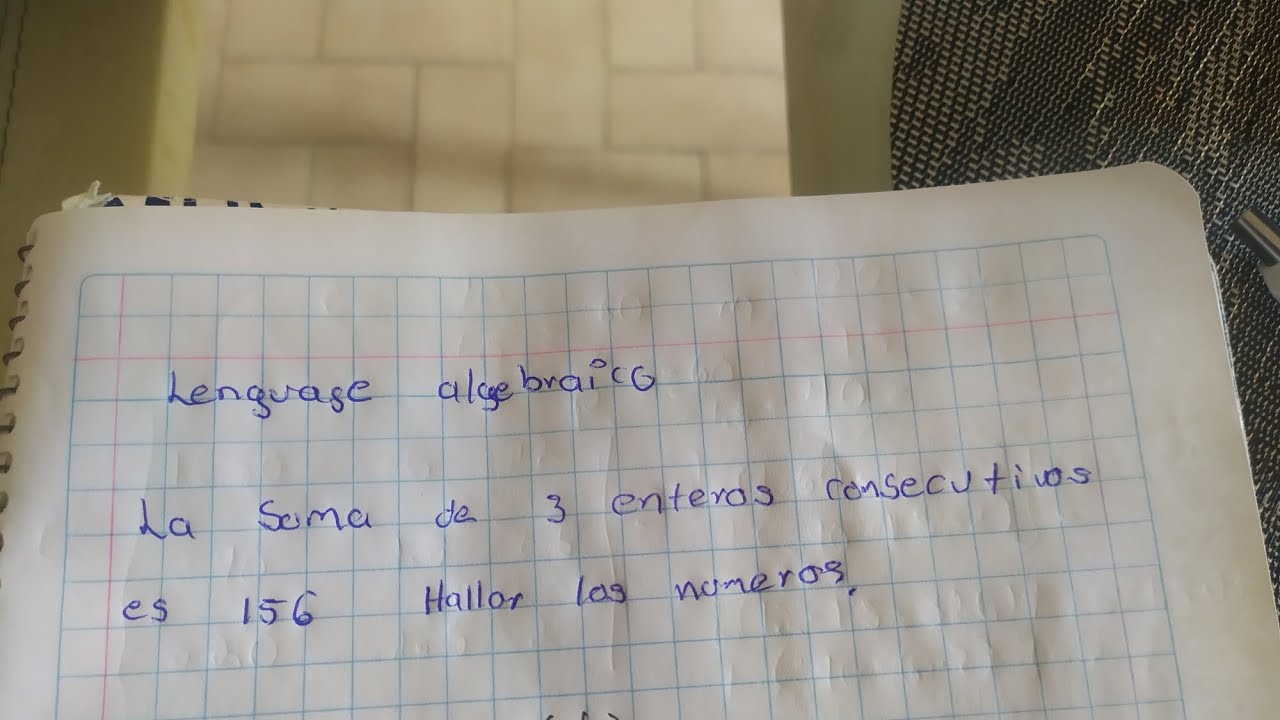 Lenguage algebraico
La Suma de 3 enteros consecutivos
es 156 Hallar los numeros.